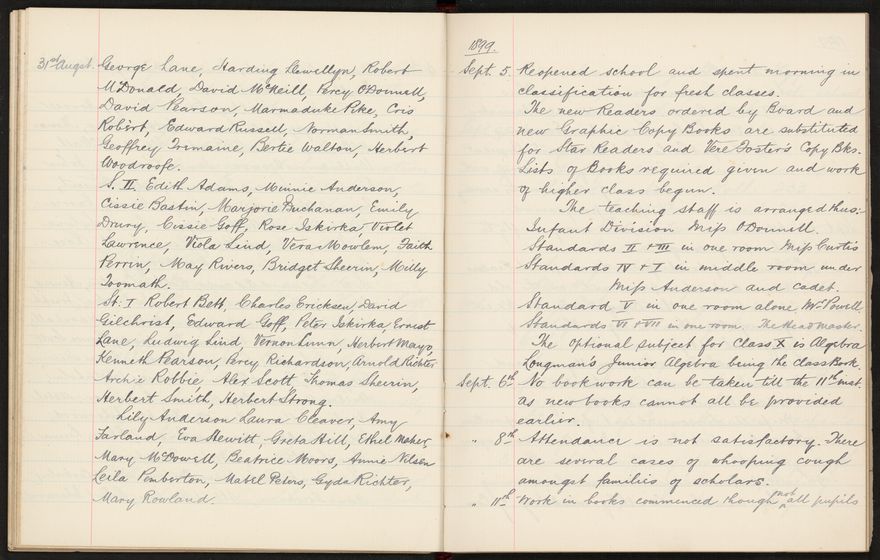 31st Augst. George Lane, Harding Llewellyn, Robert
McDonald, David McNeill, Percy O'Donnell,
David Pearson, Marmaduke Pike, Cris
Robert, Edward Russell, Norman Smith,
Geoffrey Tremaine, Bertie Walton, Herbert
Woodroofe.
S. II. Edith Adams, Minnie Anderson,
Cissie Bastin, Marjorie Buchanan, Emily
Drury, Cissie Goff, Rose Iskirka, Violet
Lawrence, Viola Lind, Vera Mowlem, Faith
Perrin, May Rivers, Bridget Sheerin, Milly
Toomath.
St. I Robert Bett, Charles Ericksen, David
Gilchrist, Edward Goff, Peter Iskirka, Ernest
Lane, Ludwig Lind, Vernon Lunn, Herbert Mayo,
Kenneth Pearson, Percy Richardson, Arnold Richter
Archie Robbie, Alex Scott, Thomas Sheerin,
Herbert Smith, Herbert Strong.
Lily Anderson Laura Cleaver, Amy
Farland, Eva Hewitt, Greta Hill, Ethel Maher,
Mary McDowell, Beatrice Moors, Annie Nelsen
Leila Pemberton, Mabel Peters, Gyda Richter,
Mary Rowland.
1899.
Sept. 5. Reopened school and spent morning in
classification for fresh classes.
The new Readers ordered by Board and
new Graphic Copy Books are substituted
for Star Readers and Vere Foster's Copy Bks.
Lists of Books required given and work
of higher class begun.
The teaching staff is arranged thus:-
Infant Division Miss O'Donnell.
Standards II + III in one room Miss Curtis
Standards IV + I in middle room under
Miss Anderson and cadet.
Standard V in one room alone, Mr Powell.
Standards VI + VII in one room. The Head Master.
The optional subject for Class X is Algebra
Longman's Junior Algebra being the class Book.
Sept. 6th No book work can be taken till the 11th inst.
as new books cannot all be provided
earlier.
" 8th Attendance is not satisfactory. There
are several cases of whooping cough
amongst families of scholars.
" 11th Work in books commenced though not all pupils